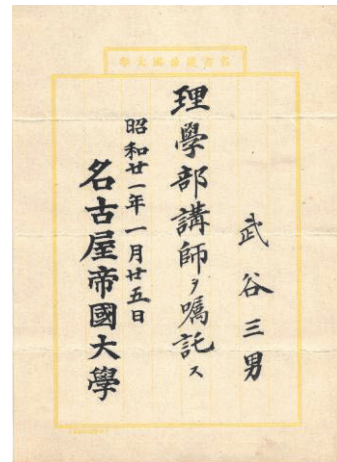 名古屋帝國大學
武谷三男
理學部講師ヲ嘱託ス
昭和廿一年一月廿五日
名古屋帝國大學